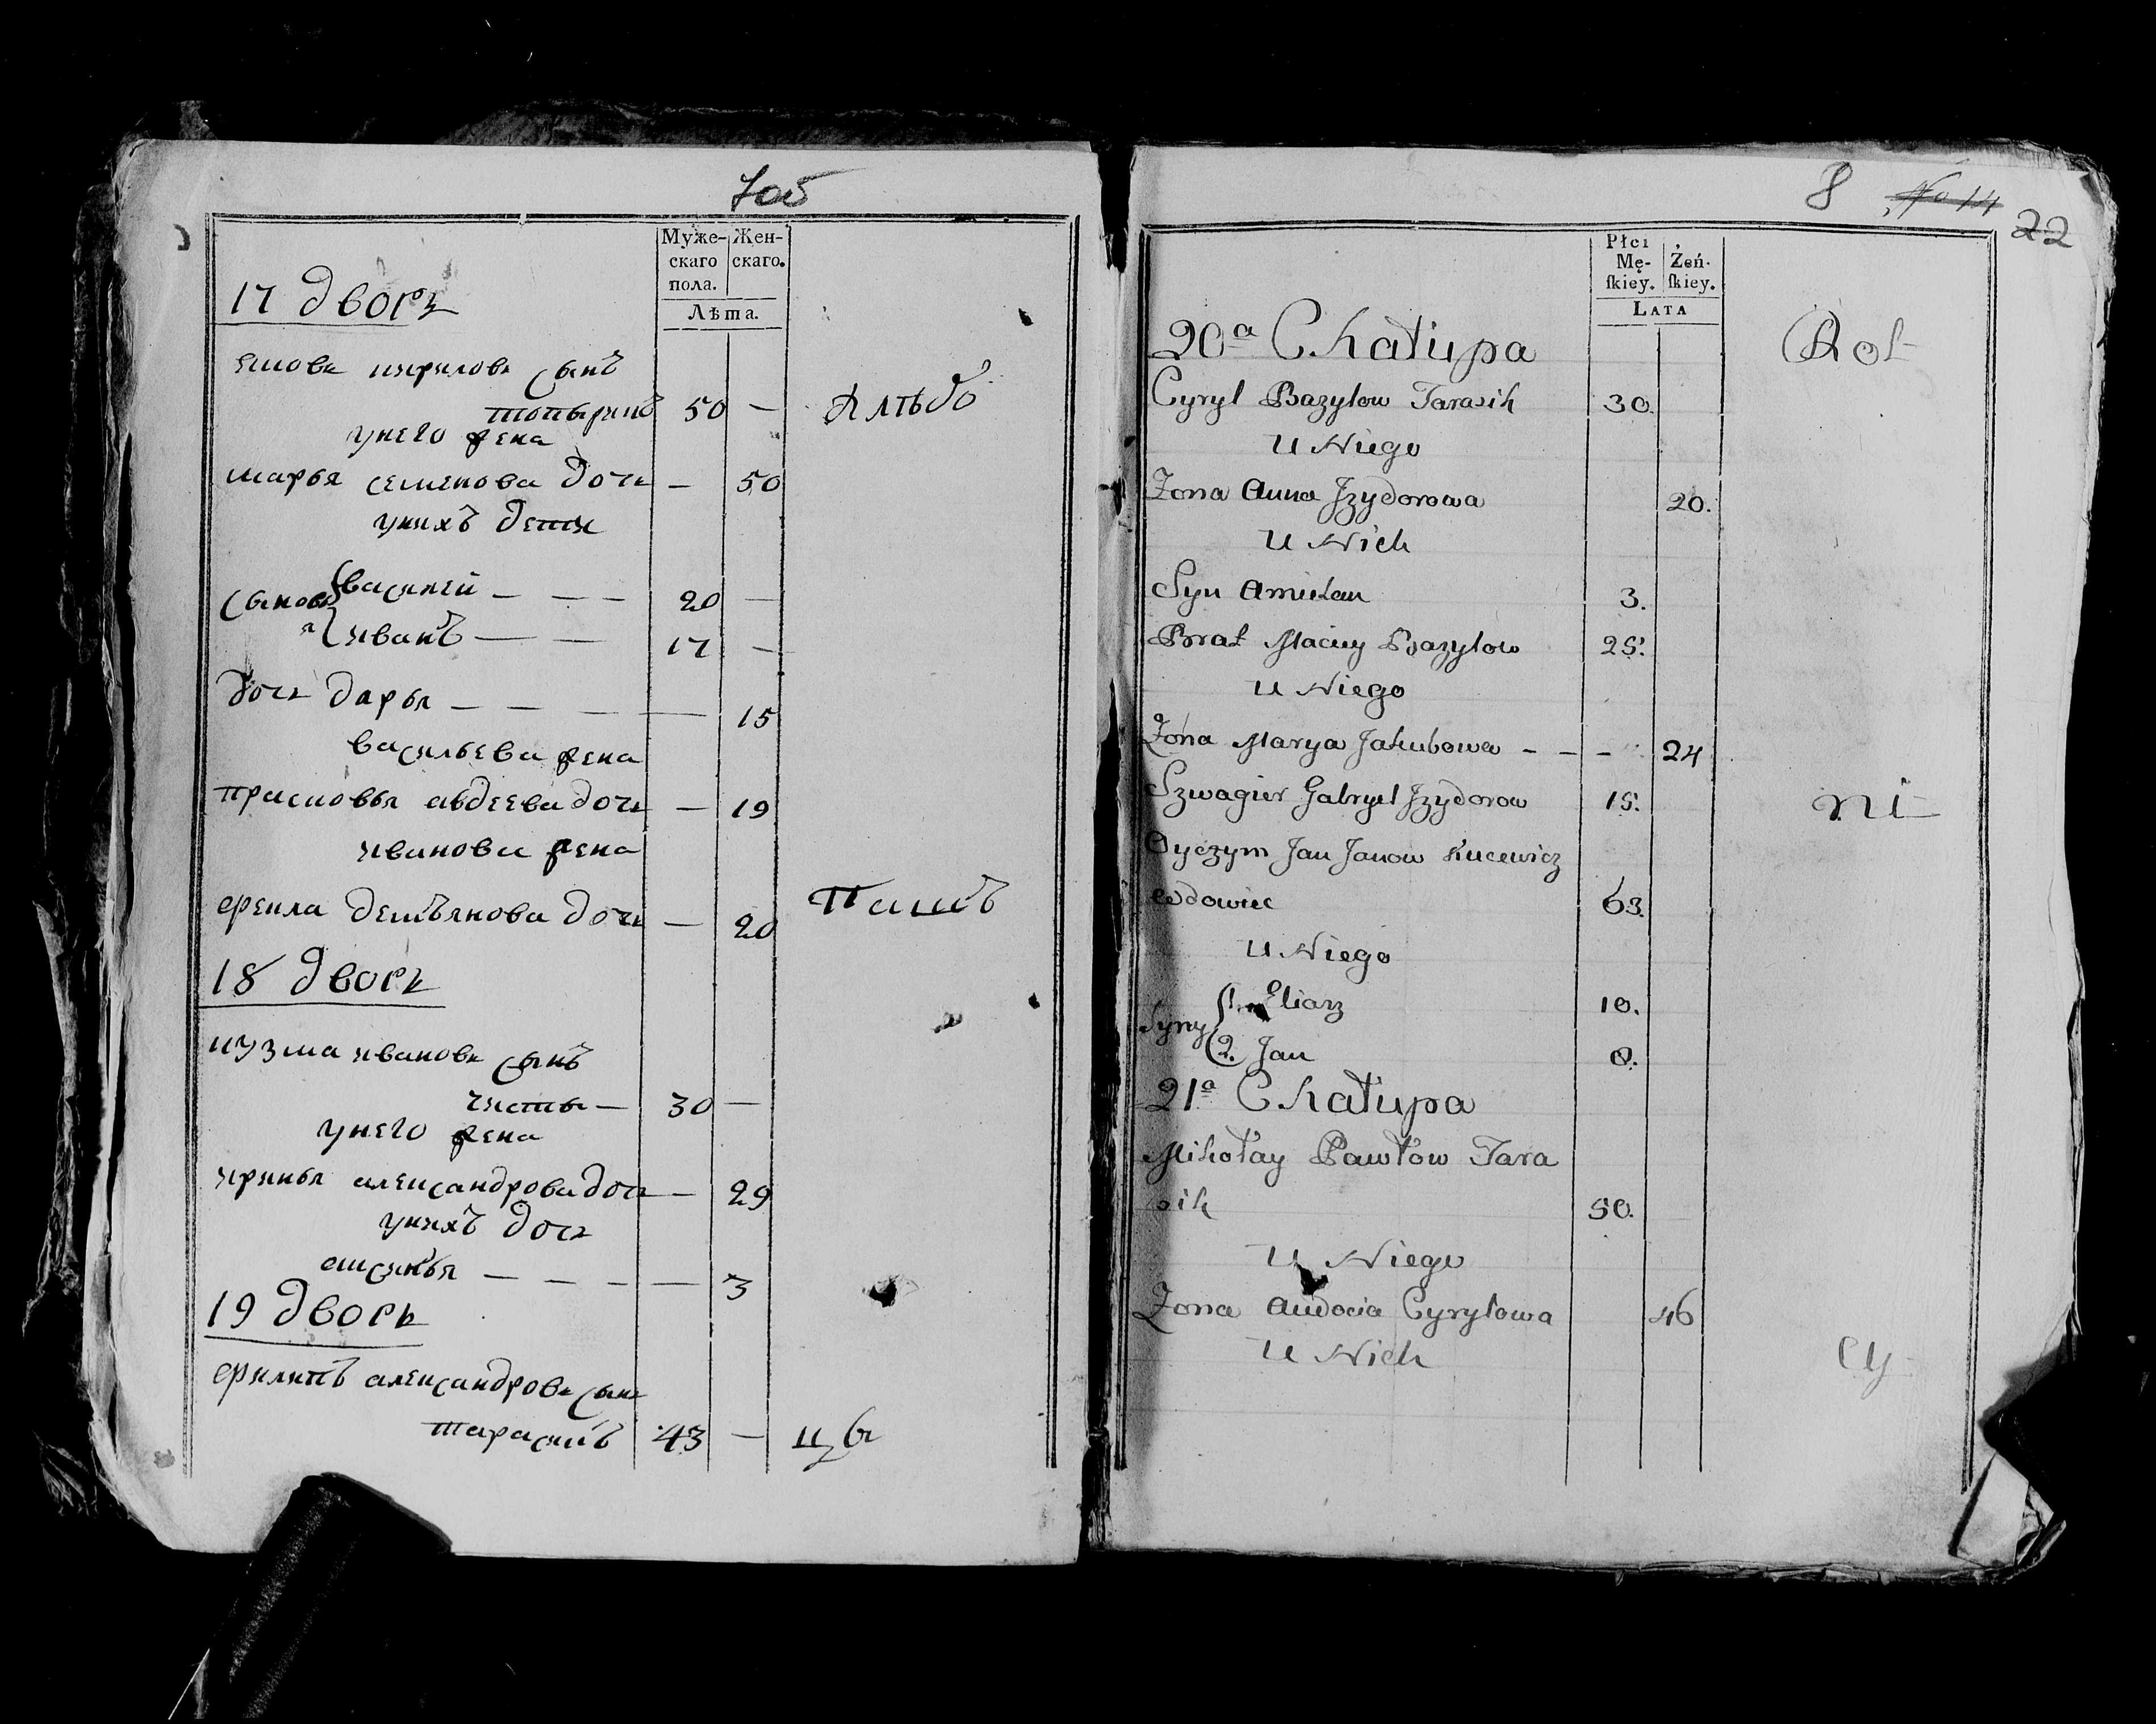 7об
Муже-
скаго
пола.
Жен-
скаго.
Лѣта.
17 дворъ
якова кирилова сынъ
топырикъ 50 —
Хлѣбо
у него жена
марья семенова дочь — 50
у нихъ дети
сыновья
василей — — — 20 —
иванъ — — 17 —
дочь дарья — — — — 15
васильева жена
прасковья авдеева дочь — 19
иванова жена
фекла демьянова дочь — 20
Пашъ
18 дворъ
кузма иванова сынъ
30 —
у него жена
иринья александрова дочь — 29
у нихъ дочь
аксинья — — — — 3
19 дворъ
филипъ александрова сынъ
тарасикъ 43 — цы
8 No 14
22
Płci
Mę-
ſkiey.
Żeń-
ſkiey.
LATA
20a Chałupa
Rol-
Cyryl Bazylow Tarasik 30.
U Niego
Zona Anna Jzydorowa 20.
U Nich
Syn Amielan 3.
Brat Maciey Bazylow 25.
U Niego
Zona Marya Jakubowa - - - 24
Szwagier Gabryel Jzydorow 15.
ni-
Oyczym Jan Janow Kucewicz
wdowiec 63.
U Niego
Syny
1. Eliasz 10.
2. Jan 8.
21a Chałupa
Mikołay Pawłow Tara
sik 50.
U Niego
Zona Audocia Cyryłowa 46
U Nich
cy